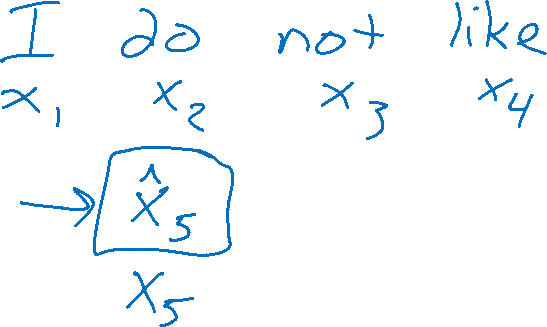 I do not like
x₁ x₂ x₃ x₄
→ x̂₅
x₅